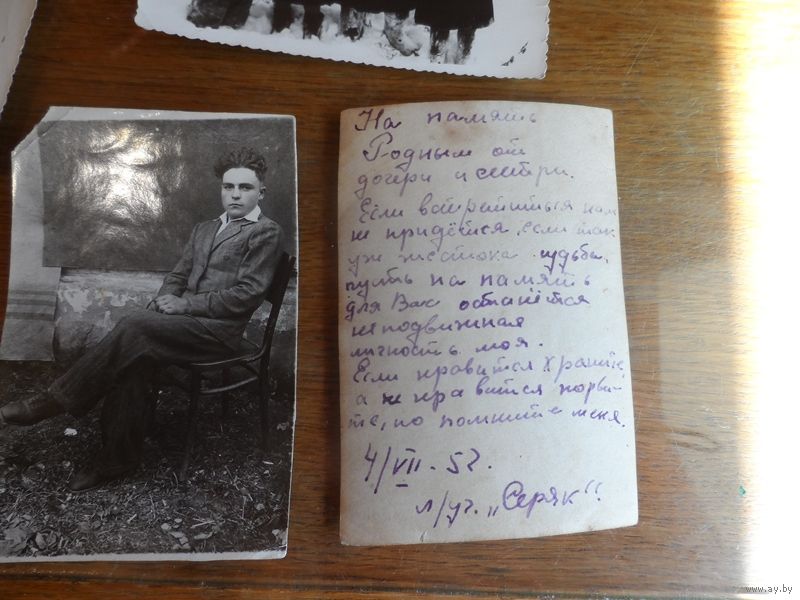 На память
Родным от
дочери и сестры.
Если встретиться нам
не придётся, если так
уж жестока судьба,
пусть на память
для Вас останется
неподвижная
личность моя.
Если нравится храните,
а не нравится порви-
те, но помните меня.
4/VII - 52.
л/уч. „Серяк“.
www.ay.by